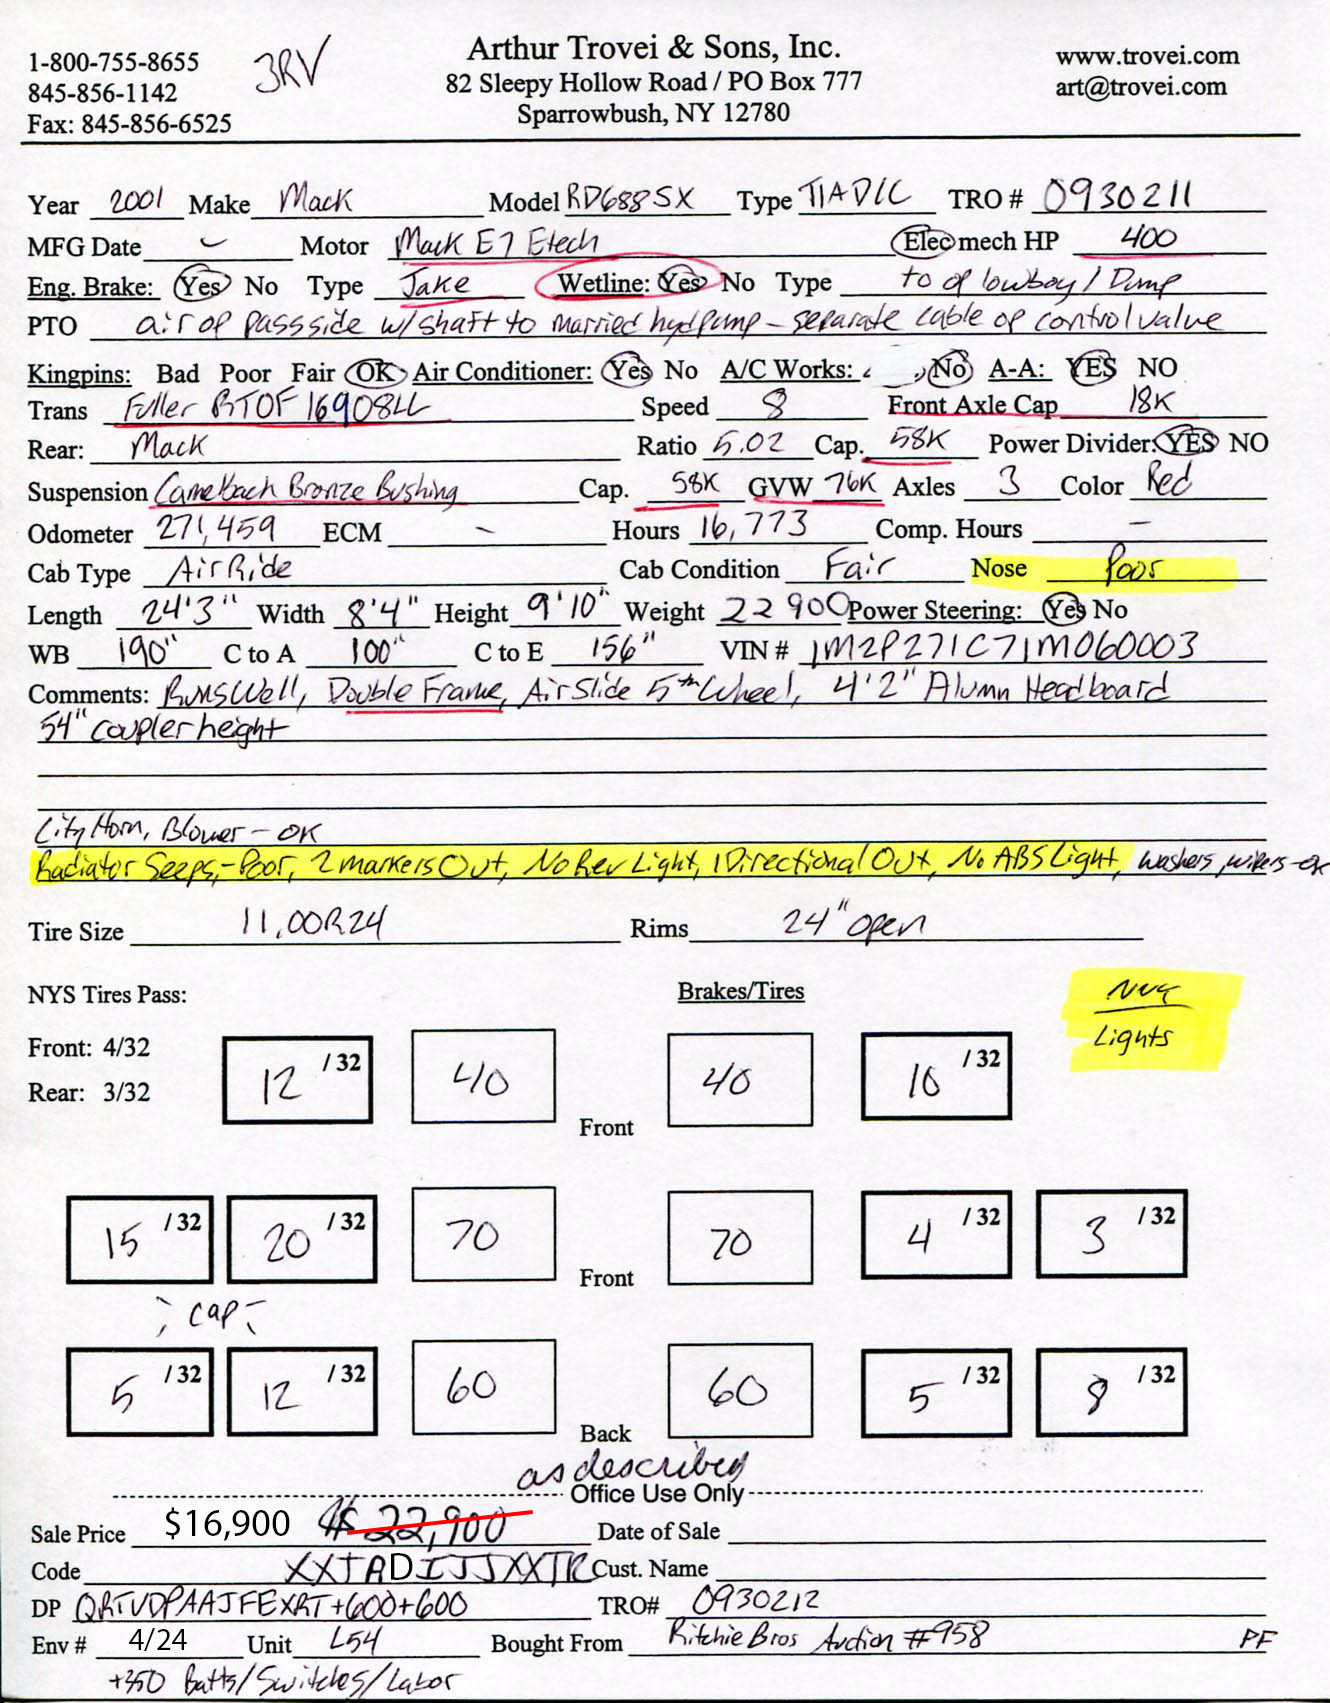 1-800-755-8655 3RV Arthur Trovei & Sons, Inc. www.trovei.com
845-856-1142 82 Sleepy Hollow Road / PO Box 777 art@trovei.com
Fax: 845-856-6525 Sparrowbush, NY 12780
Year 2001 Make Mack Model RD688SX Type TRO # 0930211
MFG Date Motor Mack E7 Etech Elec mech HP 400
Eng. Brake: Yes No Type Jake Wetline: Yes No Type to op lowboy / Dump
PTO air op passside w/shaft to married hydpump - separate cable op control valve
Kingpins: Bad Poor Fair OK Air Conditioner: Yes No A/C Works: No A-A: YES NO
Trans Fuller RTOF 16908LL Speed 8 Front Axle Cap 18K
Rear: Mack Ratio 5.02 Cap. 58K Power Divider: YES NO
Suspension Camelback Bronze Bushing Cap. 58K GVW 76K Axles 3 Color Red
Odometer 271,459 ECM - Hours 16,773 Comp. Hours -
Cab Type AirRide Cab Condition Fair Nose Poor
Length 24'3" Width 8'4" Height 9'10" Weight 22900 Power Steering: Yes No
WB 190" C to A 100" C to E 156" VIN # 1M2P271C71M060003
Comments: Runs Well, Double Frame, Air Slide 5th Wheel, 4'2" Alumn Headboard
54" coupler height
City Horn, Blower - OK
Radiator Seeps,-Poor, 2 markers Out, No Rev Light, 1 Directional Out, No ABS Light, washers, wipers-OK
Tire Size 11.00R24 Rims 24" open
NYS Tires Pass: Brakes/Tires
Lights
Front: 4/32 12 /32 40 40 10 /32
Rear: 3/32
Front
15 /32 20 /32 70 70 4 /32 3 /32
Front
cap
5 /32 12 /32 60 60 5 /32 8 /32
Back
as described
Office Use Only
Sale Price $16,900 $22,900 Date of Sale
Code XXTADIJJXXTR Cust. Name
DP QRTVDPAAJFEXRT+600+600 TRO# 0930212
Env # 4/24 Unit L54 Bought From Ritchie Bros Auction #958 PF
+350 Batts/Switches/Labor